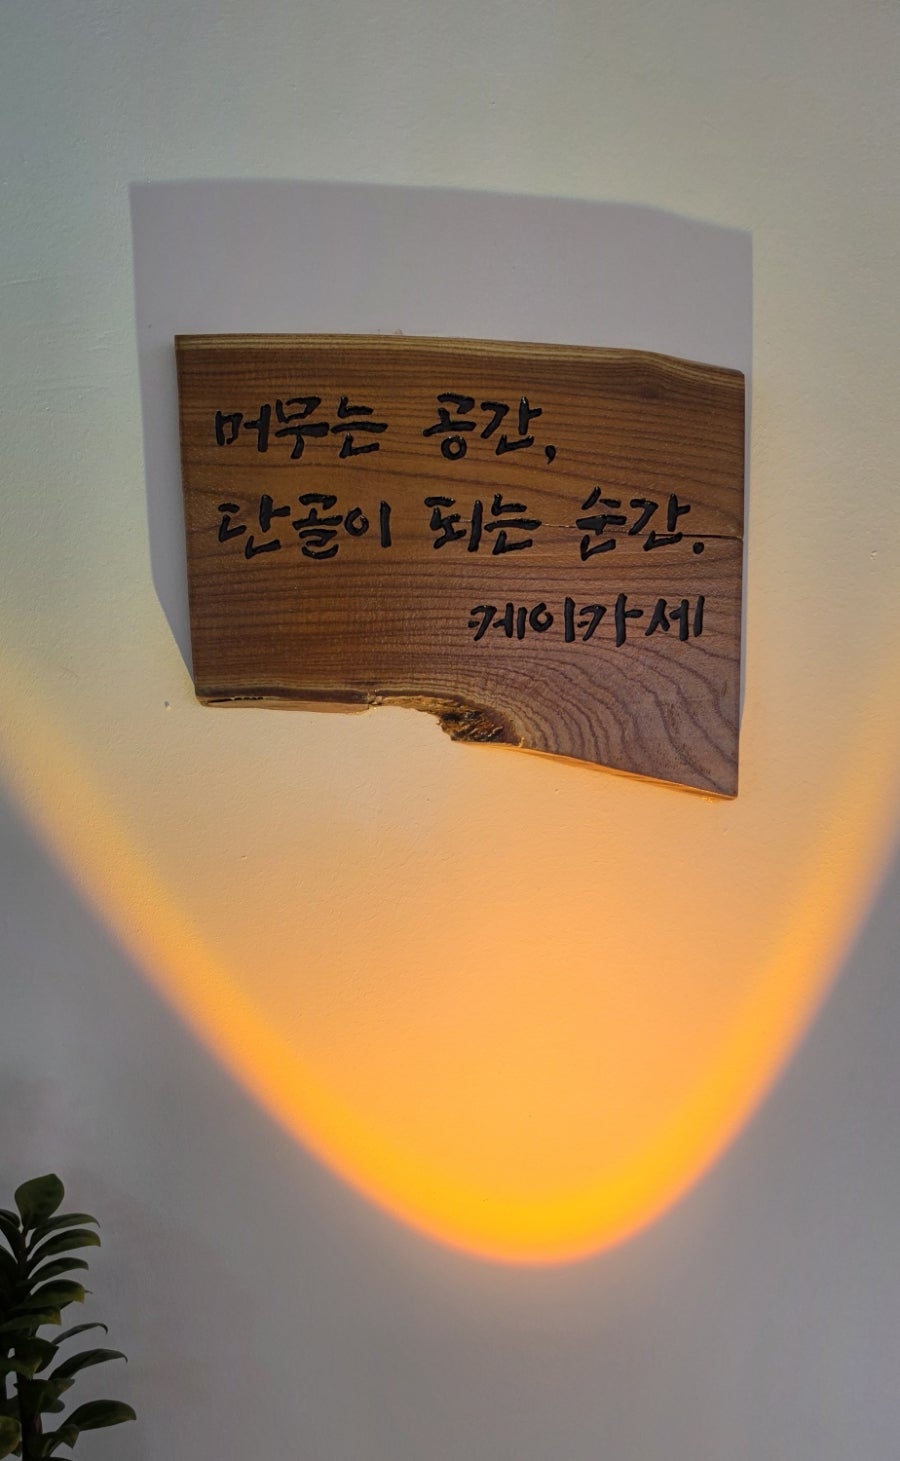 머무는 공간,
단골이 되는 순간.
케이카세